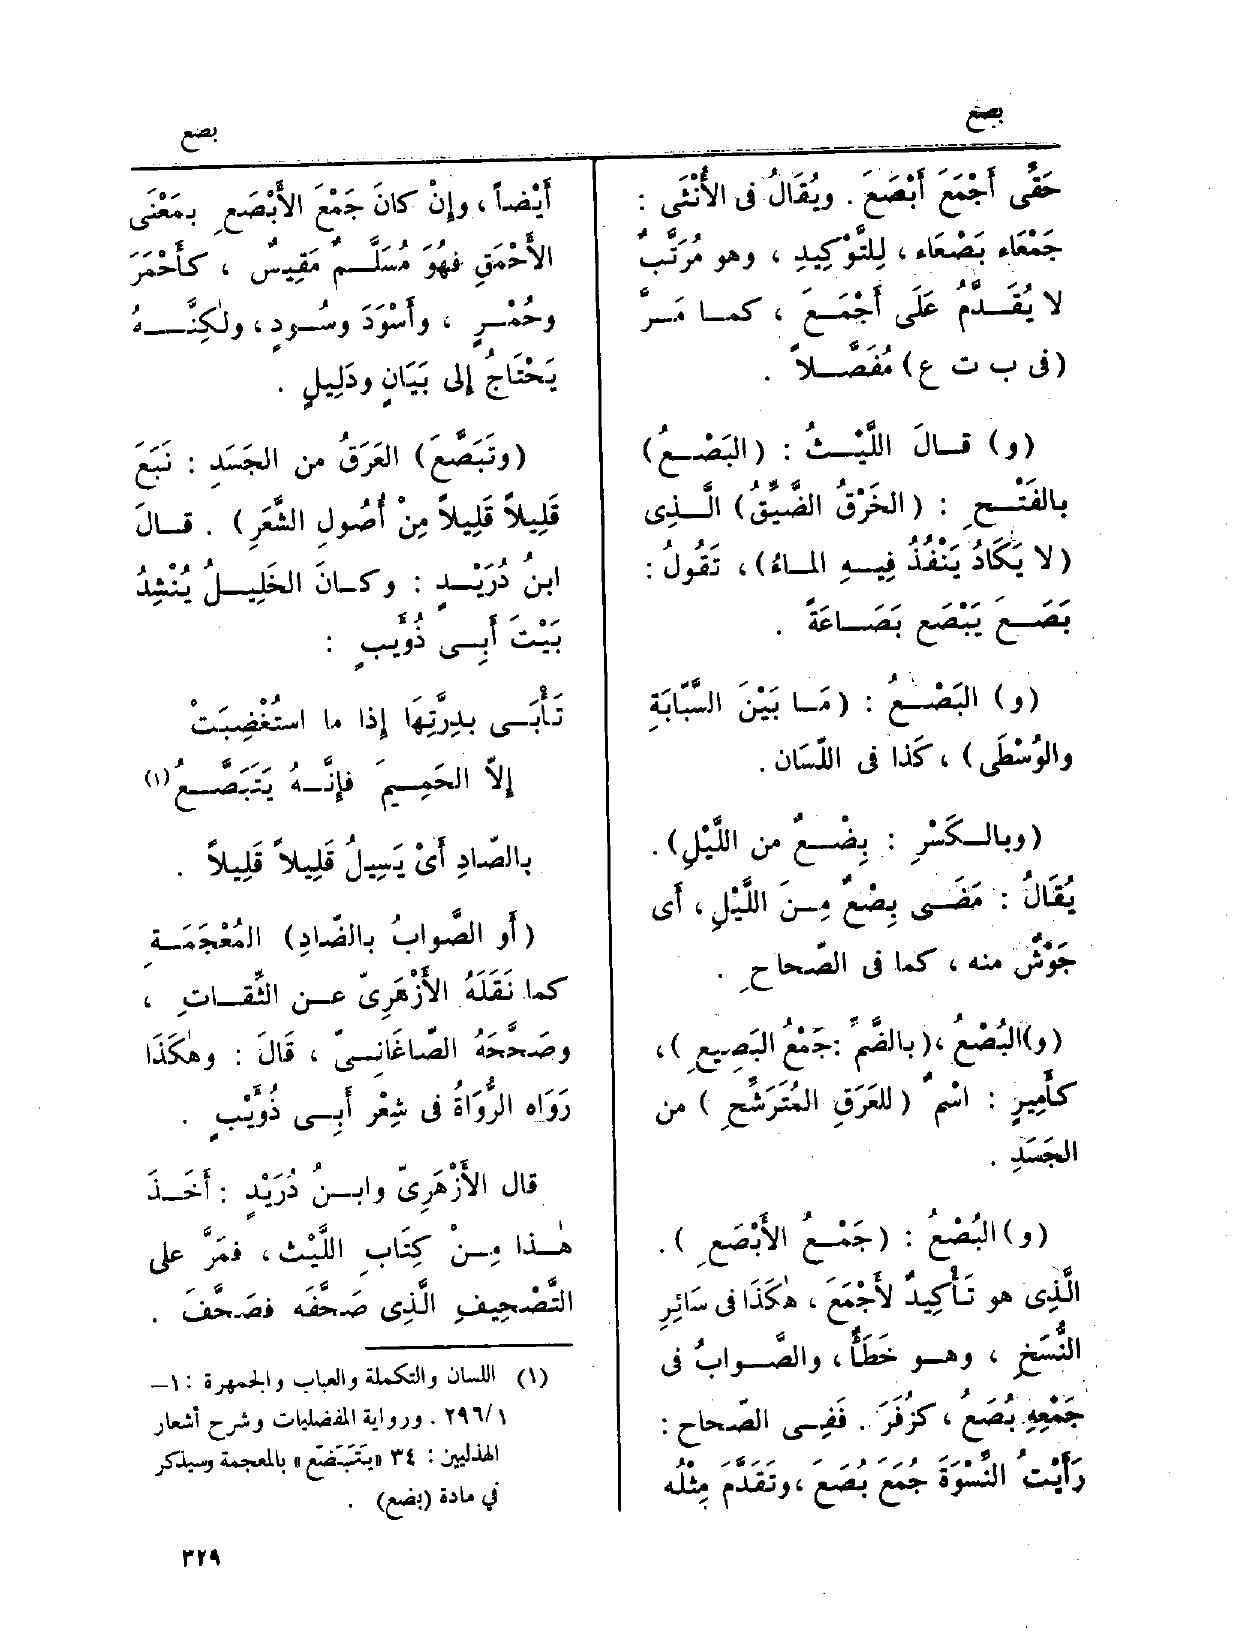 بصع
بصع
حَقِّى أَجْمَعَ أَبْصَعَ . ويُقَالُ فى الأُنْثَى :
جَمْعَاء بَصْعَاء ، لِلتَّوْكِيدِ ، وهو مُرَتَّبٌ
لا يُقَــدَّمُ عَلَى أَجْمَــعَ ، كمــا مَــرَّ
(فى ب ت ع) مُفَصَّــلاً .
(و) قــالَ اللَّيْــثُ : (البَصْــعُ)
بالفَتْــحِ : (الخَرْقُ الضَّيِّقُ) الَّــذِى
(لا يَكَادُ يَنْفُذُ فِيــهِ المــاءُ) ، تَقُولُ :
بَصَــعَ يَبْصَع بَصَــاعَةً .
(و) البَصْــعُ : (مَــا بَيْنَ السَّبّابَةِ
والوُسْطَى) ، كَذا فى اللِّسَان .
(وبالــكَسْرِ : بِضْــعٌ من اللَّيْلِ) .
يُقَالُ : مَضَــى بِصْعٌ مِــنَ اللَّيْلِ ، أَى
جَوْشٌ منه ، كما فى الصّحاحِ .
(و)البُصْعُ ،(بالضَّمِّ :جَمْعُ البَصِيعِ )،
كأَمِيرٍ : اسْمٌ (للعَرَقِ المُتَرَشِّحِ ) من
الجَسَدِ .
(و) البُصْعُ : (جَمْــعُ الأَبْصَعِ ) .
الَّذِى هو تَــأْكِيدٌ لأَجْمَعَ ، هٰكَذَا فى سَائِرِ
النُّسَخِ ، وهــو خَطَأٌ ، والصَّــوابُ فى
جَمْعِهِ بُصَع ، كزُفَرَ . ففِــى الصّحاح :
رَأَيْتُ النِّسْوَةَ جُمَعَ بُصَعَ ،وتَقَدَّمَ مِثْلُه
أَيْضاً ، وإِنْ كانَ جَمْعَ الأَبْصَعِ بمَعْنَى
الأَحْمَقِ فهُوَ مُسَلَّــمٌ مَقِيس ، كأَحْمَرَ
وحُمْــرٍ ، وأَسْوَدَ وسُــودٍ ، ولٰكِنَّــــهُ
يَحْتَاجُ إِلى بَيَانٍ ودَلِيلٍ .
(وتَبَصَّعَ) العَرَقُ من الجَسَدِ : نَبَعَ
قَلِيلاً قَلِيلاً مِنْ أُصُولِ الشَّعَرِ) . قــالَ
ابنُ دُرَيْــدٍ : وكــانَ الخَلِيــلُ يُنْشِدُ
بَيْتَ أَبِــى ذُؤَيبٍ :
تَأْبَــى بدِرَّتِهَا إِذا ما استُغْضِبَتْ
إِلاّ الحَمِيــمَ فإِنَّــهُ يَتَبَصَّــعُ(١)
بالصّادِ أَىْ يَسِيلُ قَلِيلاً قَلِيلاً .
(أَو الصَّوابُ بالضّادِ) المُعْجَمَــةِ
كما نَقَلَهُ الأَزْهَرِىّ عــن الثِّقــاتِ ،
وصَحَّحَهُ الصّاغَانِــىّ ، قَالَ : وهٰكَذَا
رَوَاه الرُّوَاةُ فى شِعْر أَبِــى ذُؤَيْبٍ .
قال الأَزْهَرِىّ وابــنُ دُرَيْدٍ : أَخَــذَ
هٰــذا مِــنْ كِتَابِ اللَّيْث ، فمَرَّ على
التَّصْحِيفِ الَّذِى صَحَّفَه فصَحَّفَ .
(١) اللسان والتكملة والعباب والجمهرة :١–
٢٩٦/١ . ورواية المفضليات وشرح أشعار
الهذليين : ٣٤ «يَتَبَضّع» بالمعجمة وسيذكر
في مادة (بضع) .
٣٢٩